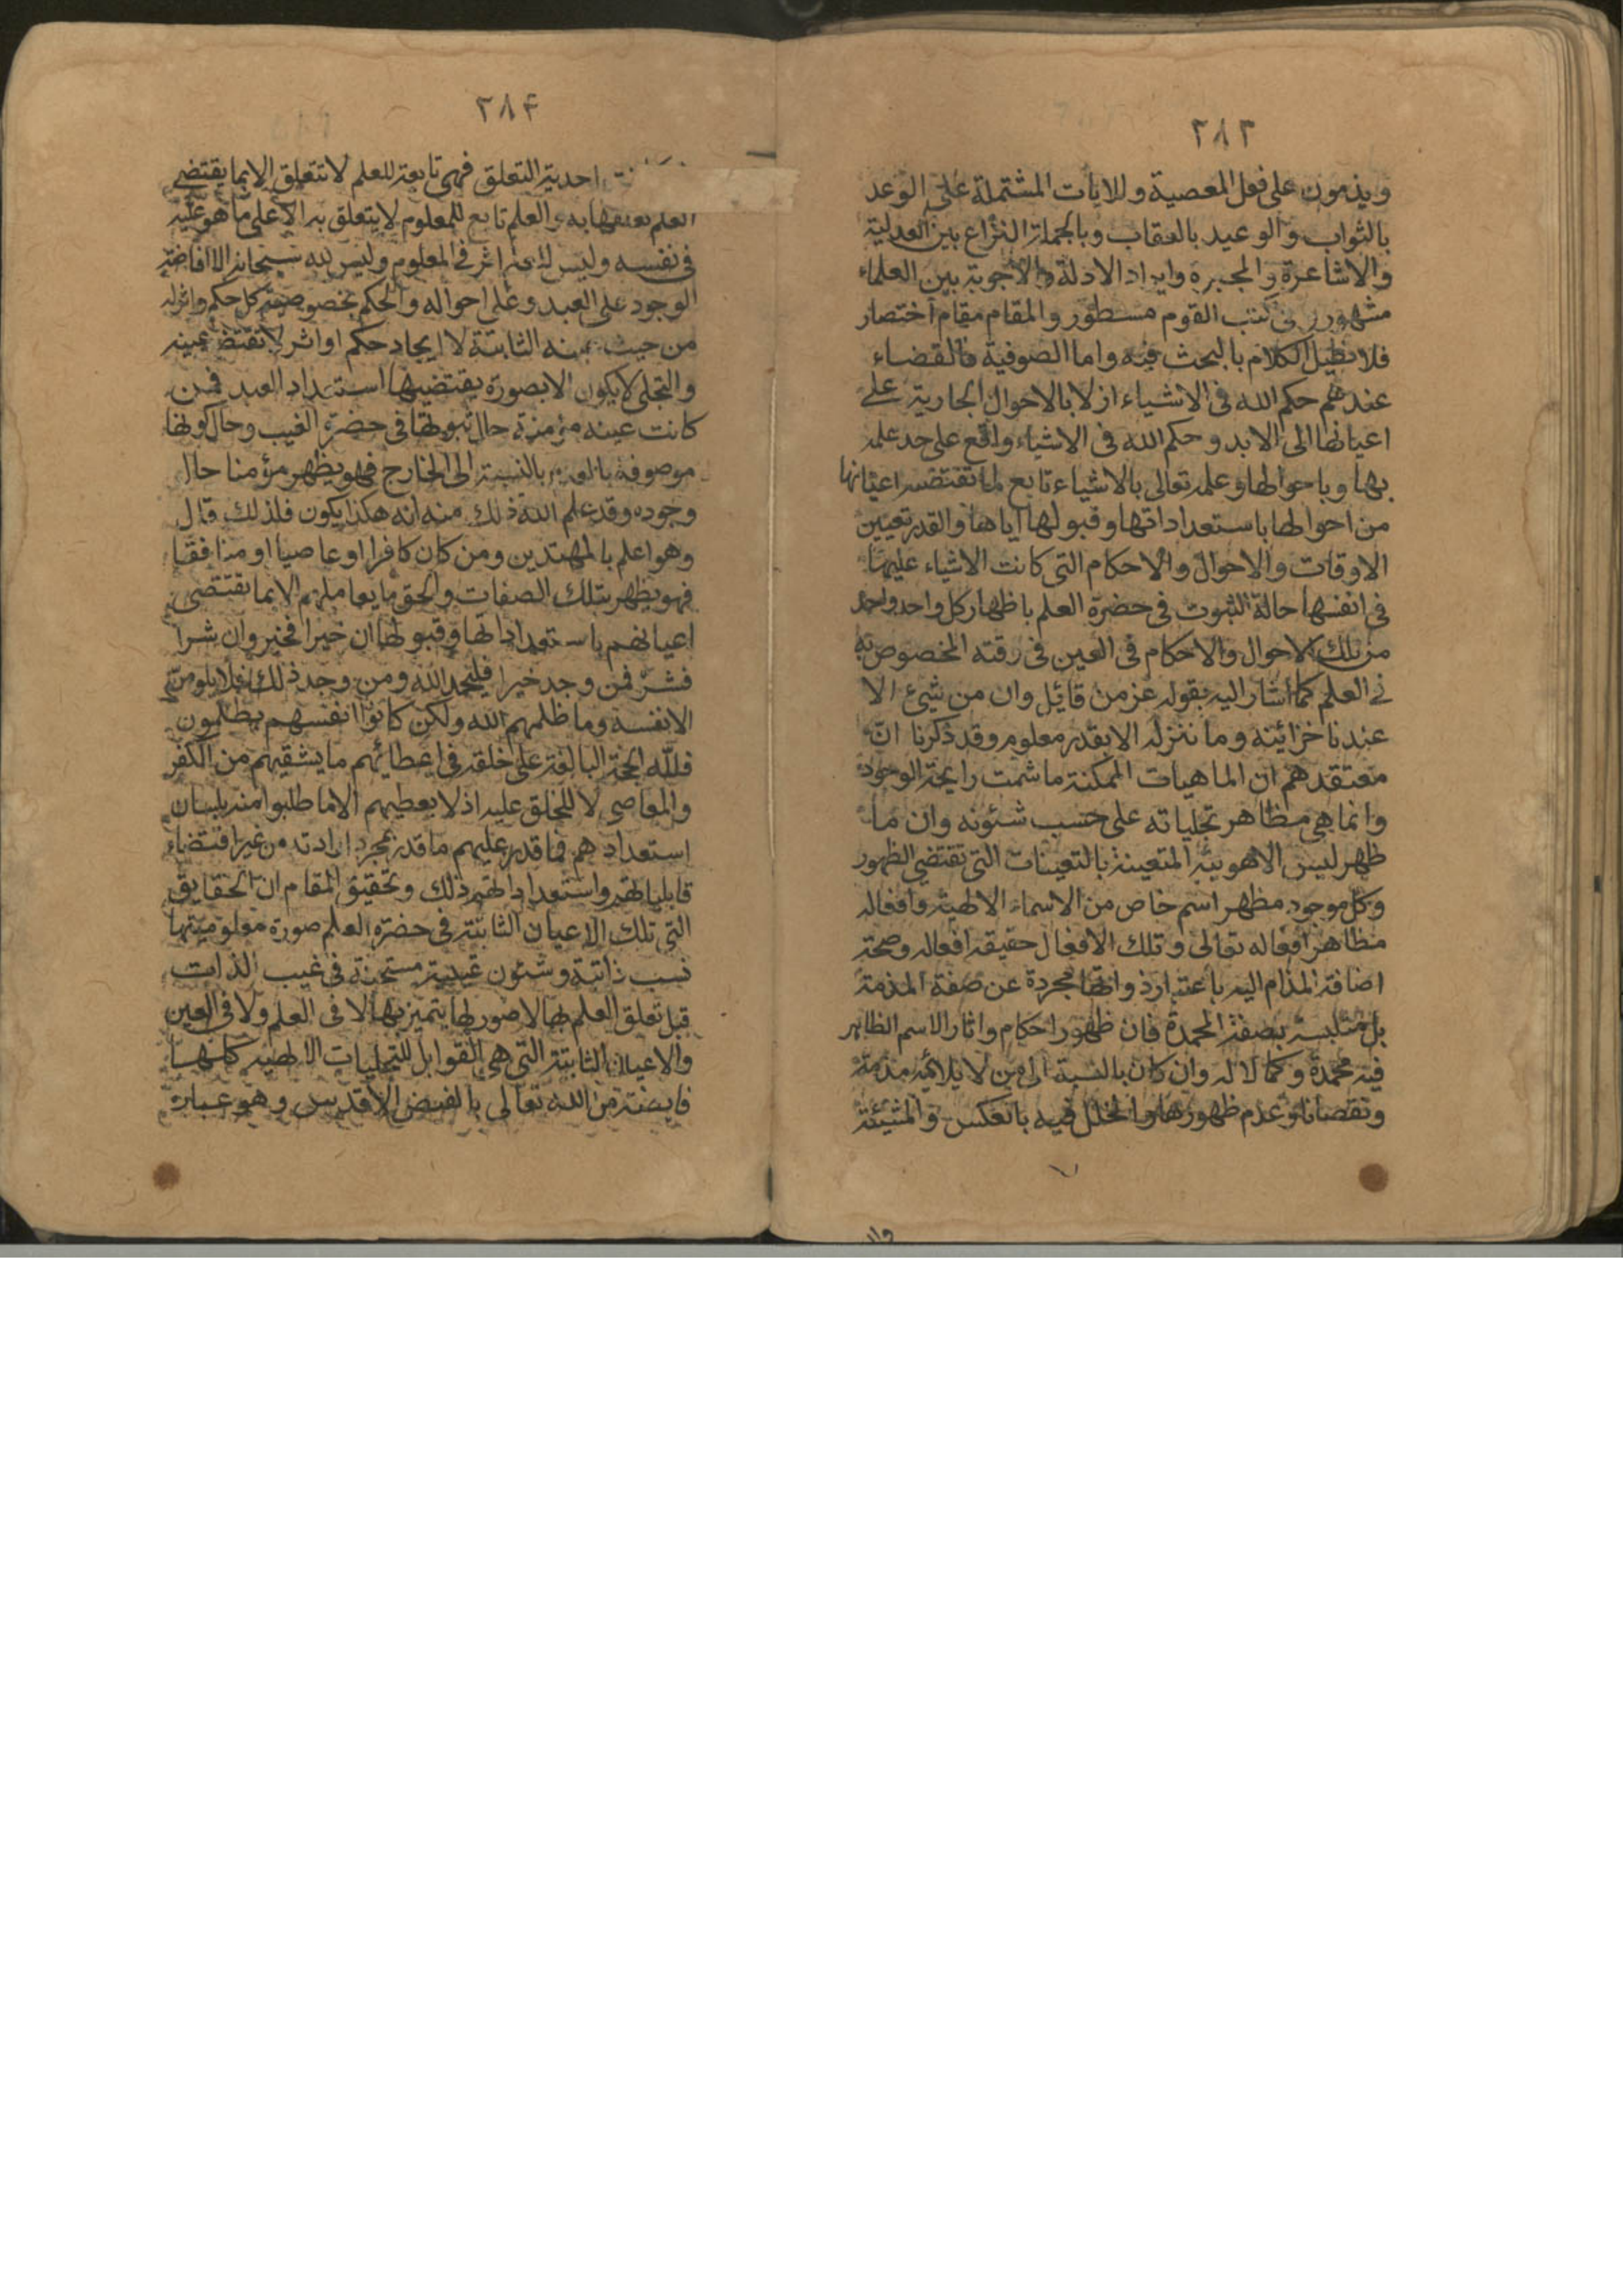 ٢٨٣
ويذمون على فعل المعصية وللايات المشتملة على الوعد
بالثواب والوعيد بالعقاب وبالجملة النزاع بين العدلية
والاشاعرة والمجبرة وايراد الادلة والاجوبة بين العلماء
مشهور فى كتب القوم مسطور والمقام مقام اختصار
فلا نطيل الكلام بالبحث فيه واما الصوفية فالقضاء
عندهم حكم الله فى الاشياء ازلا بالاحوال الجارية على
اعيانها الى الابد وحكم الله فى الاشياء واقع على حد علمه
بها وباحوالها وعلمه تعالى بالاشياء تابع لما تقتضيه اعيانها
من احوالها باستعداداتها وقبولها اياها والقدر تعيين
الاوقات والاحوال والاحكام التى كانت الاشياء عليها
فى انفسها حالة الثبوت فى حضرة العلم باظهار كل واحد واحد
من تلك الاحوال والاحكام فى العين فى وقته المخصوص به
فى العلم كما اشار اليه بقوله عز من قايل وان من شيئ الا
عندنا خزائنه وما ننزله الا بقدر معلوم وقد ذكرنا انّ
معتقدهم ان الماهيات الممكنة ما شمت رايحة الوجود
وانما هى مظاهر تجلياته على حسب شئونه وان ما
ظهر ليس الا هويته المتعينة بالتعينات التى تقتضى الظهور
وكل موجود مظهر اسم خاص من الاسماء الالهية وافعاله
مظاهر افعاله تعالى وتلك الافعال حقيقة افعاله وصحة
اضافة المذام اليه باعتبار ذواتها مجردة عن صفة المذمة
بل متلبسة بصفة المحمدة فان ظهور احكام واثار الاسم الظاهر
فيه محمدة وكمالا له وان كان بالنسبة الى من لا يلائمه مذمة
ونقصانا وعدم ظهورها والخلل فيه بالعكس والمشيئة
٢٨٤
احدية التعلق فهى تابعة للعلم لا تتعلق الا بما يقتضى
العلم تعلقها به والعلم تابع للمعلوم لا يتعلق به الا على ما هو عليه
فى نفسه وليس للعلم اثر فى المعلوم وليس لله سبحانه الا افاضة
الوجود على العبد وعلى احواله والحكم بخصوصية كل حكم واثر له
من حيث عينه الثابتة لا ايجاد حكم او اثر لا تقتضى عينه
والتجلى لا يكون الا بصورة يقتضيها استعداد العبد فمن
كانت عينه مؤمنة حال ثبوتها فى حضرة الغيب وحال كونها
موصوفة بالعدم بالنسبة الى الخارج فهو يظهر مؤمنا حال
وجوده وقد علم الله ذلك منه انه هكذا يكون فلذلك قال
وهو اعلم بالمهتدين ومن كان كافرا او عاصيا او منافقا
فهو يظهر بتلك الصفات والحق ما يعاملهم الا بما تقتضى
اعيانهم باستعداداتها وقبولها ان خيرا فخير وان شرا
فشرّ فمن وجد خيرا فليحمد الله ومن وجد ذلك فلا يلومنّ
الا نفسه وما ظلمهم الله ولكن كانوا انفسهم يظلمون
فلله الحجة البالغة على خلقه فى اعطائهم ما يشقيهم من الكفر
والمعاصى لا للخلق عليه اذ لا يعطيهم الا ما طلبوا منه بلسان
استعدادهم فما قدر عليهم ما قدر بمجرد ارادته من غير اقتضاء
قابلياتهم واستعداداتهم ذلك وتحقيق المقام ان الحقايق
التى تلك الاعيان الثابتة فى حضرة العلم صورة معلوميتها
نسب ذاتية وشئون غيبية مستجنة فى غيب الذات
قبل تعلق العلم بها لا صور لها يتميز بها لا فى العلم ولا فى العين
والاعيان الثابتة التى هى القوابل للتجليات الالهية كلها
فايضة من الله تعالى بالفيض الاقدس وهو عبارة